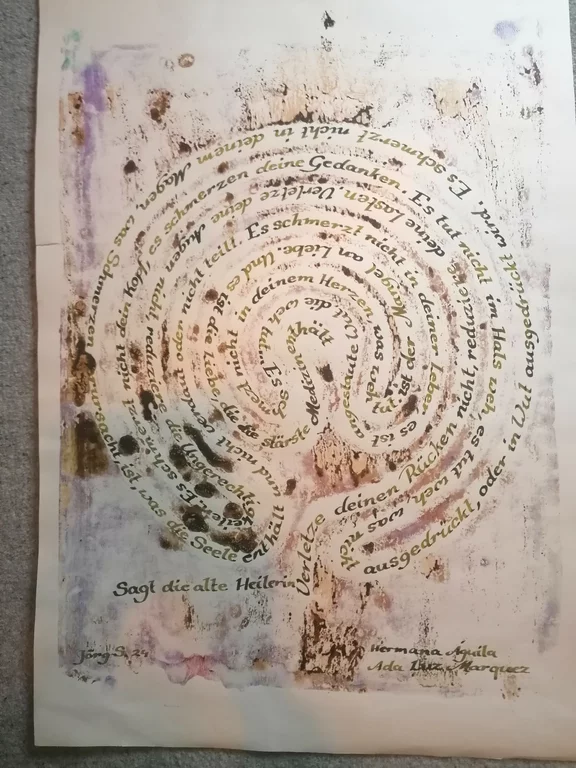 Verletze deinen Rücken nicht, reduziere
deine Lasten. Verletze deine Augen
nicht, reduziere die Ungerechtigkeiten.
Es schmerzt nicht dein Kopf, es schmerzen deine Gedanken.
Es tut nicht im Hals weh, es tut weh was nicht
ausgedrückt, oder in Wut ausgedrückt wird.
Es schmerzt nicht in deinem Magen, was Schmerzen
verursacht ist, was die Seele enthält
und nicht oder nicht teilt.
Es schmerzt nicht in deiner Leber,
es ist angestaute Wut die weh tut...
Es nicht in deinem Herzen, was weh
tut ist der Mangel an Liebe. Und es ist die Liebe,
die die stärkste Medizin enthält
Sagt die alte Heilerin
Jörg S. 24
Hermana Águila
Ada Luz Marquez